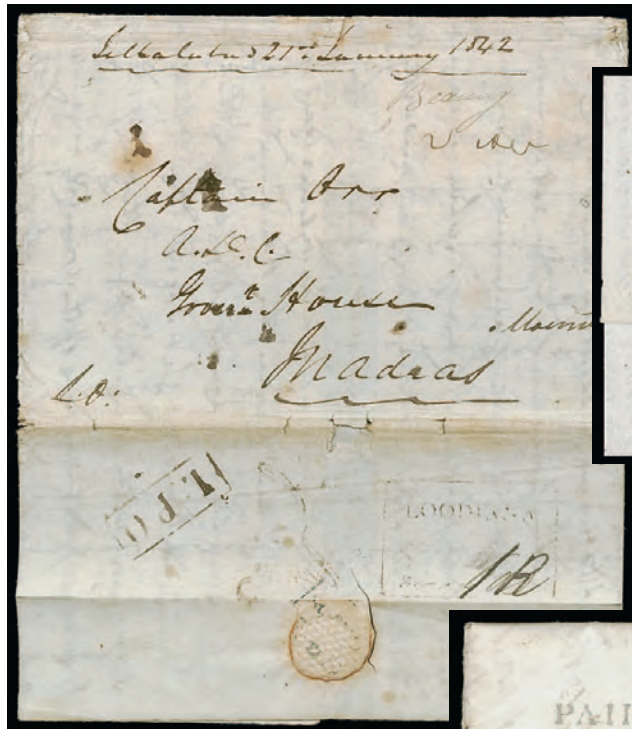 Jellalabad 21st January 1842
Bearing
Captain Orr
A.D.C.
Govert House
Madras
L.O:
T.P.O
LOODIANA
1R
PAI